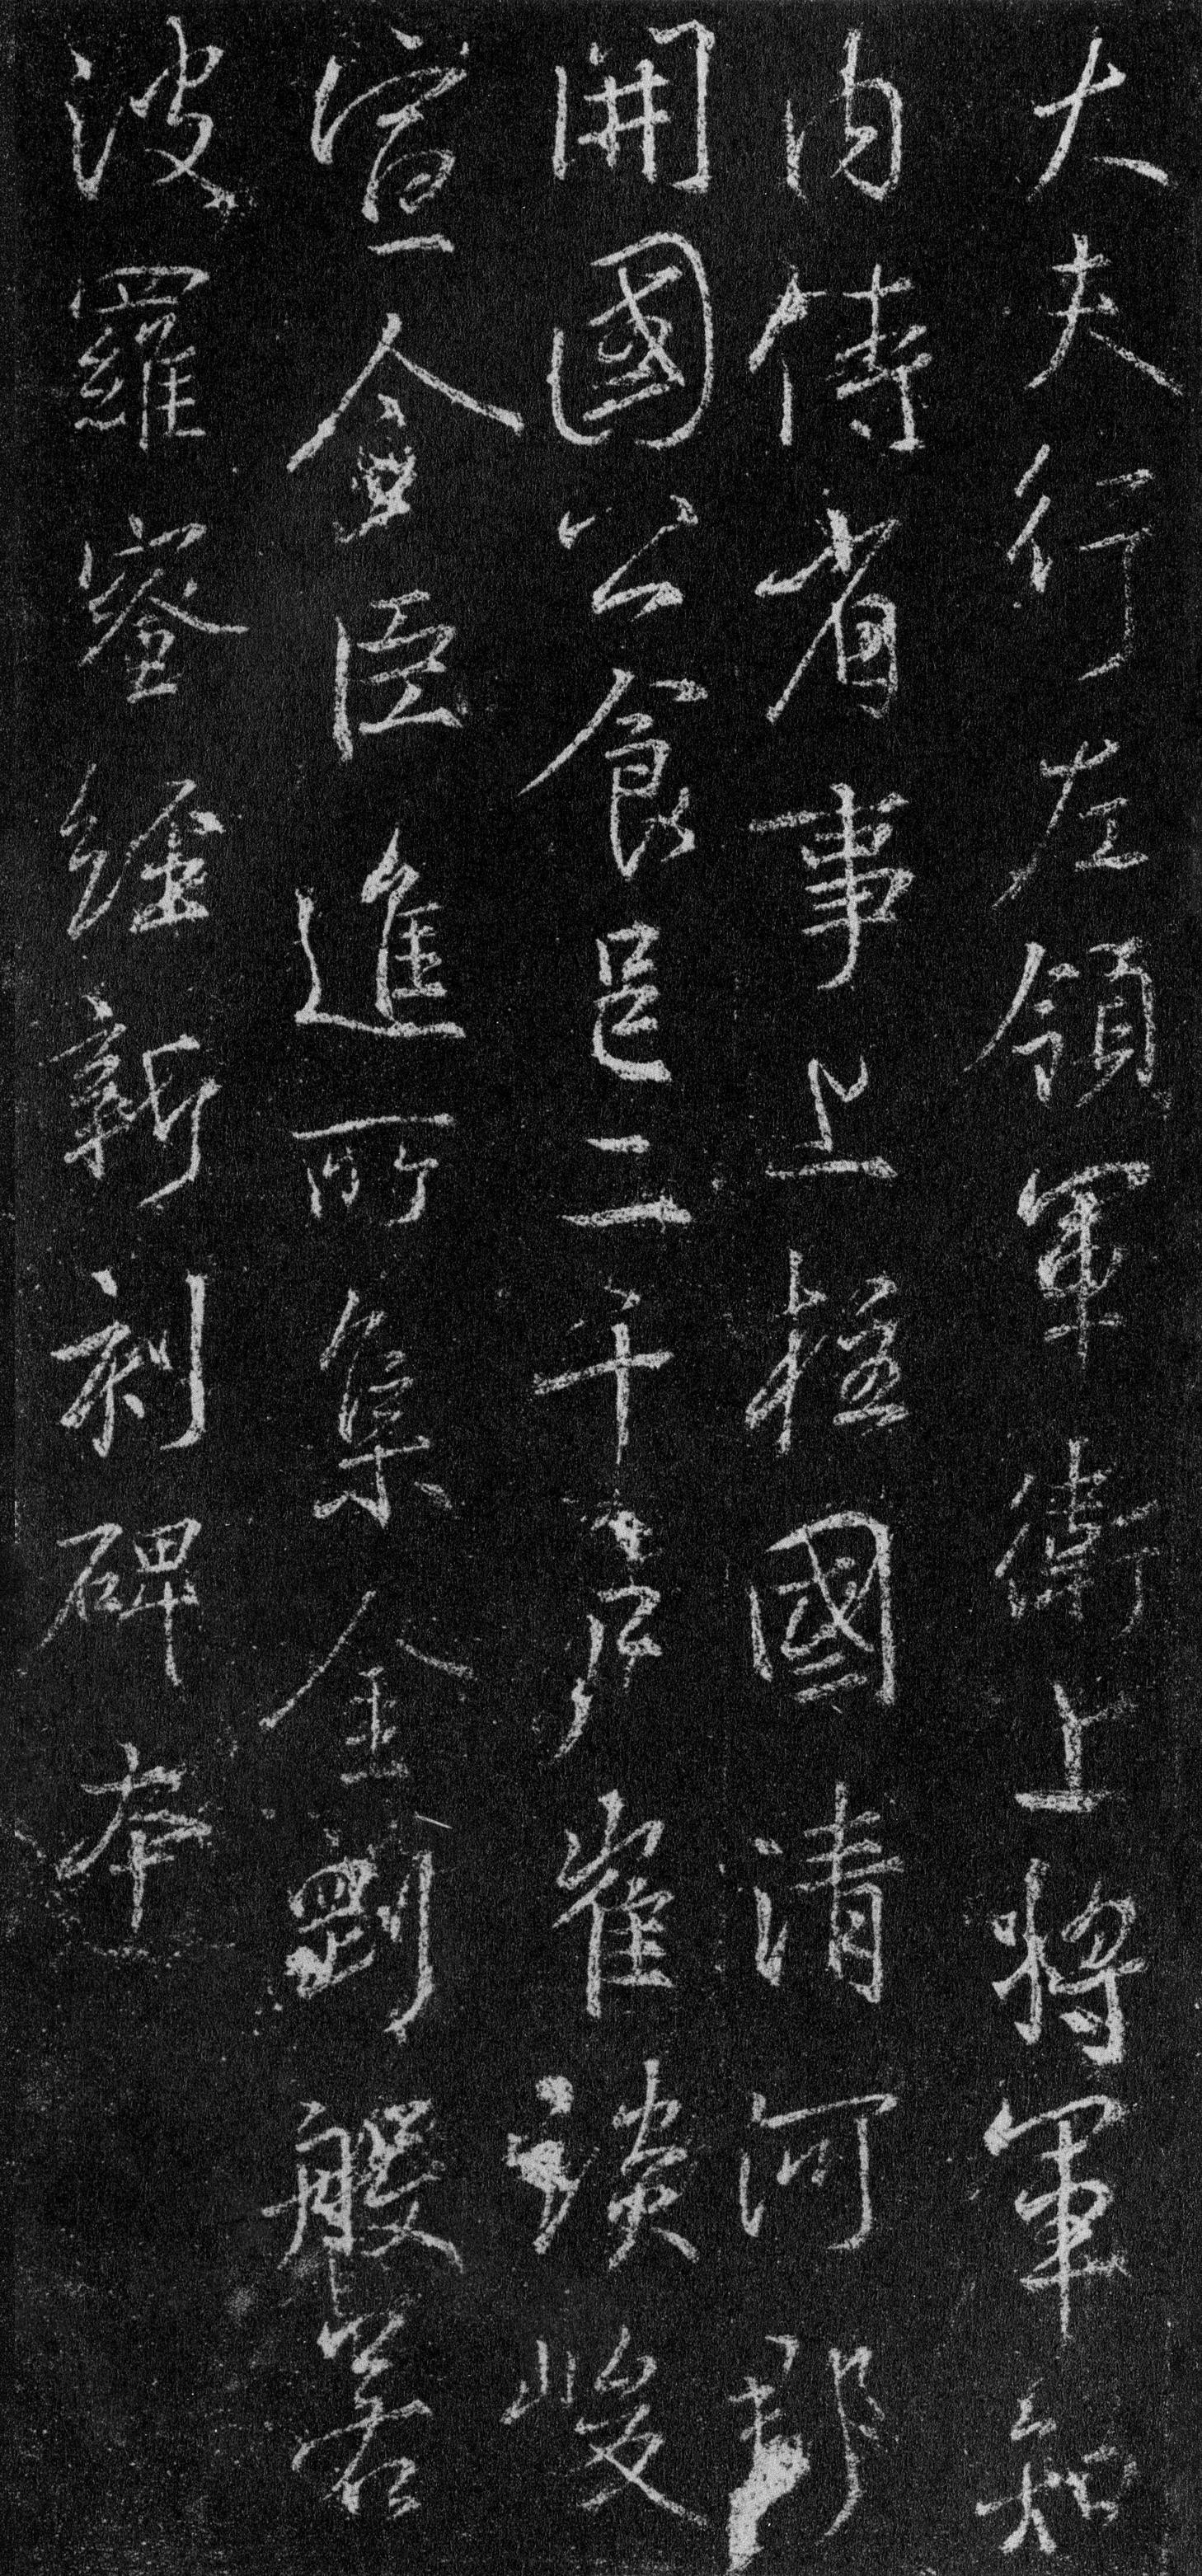 大夫行左領軍衛上將軍知
內侍省事上柱國清河郡
開國公食邑二千戶崔譚峻
宣令臣進所集金剛般若
波羅蜜經新刻碑本